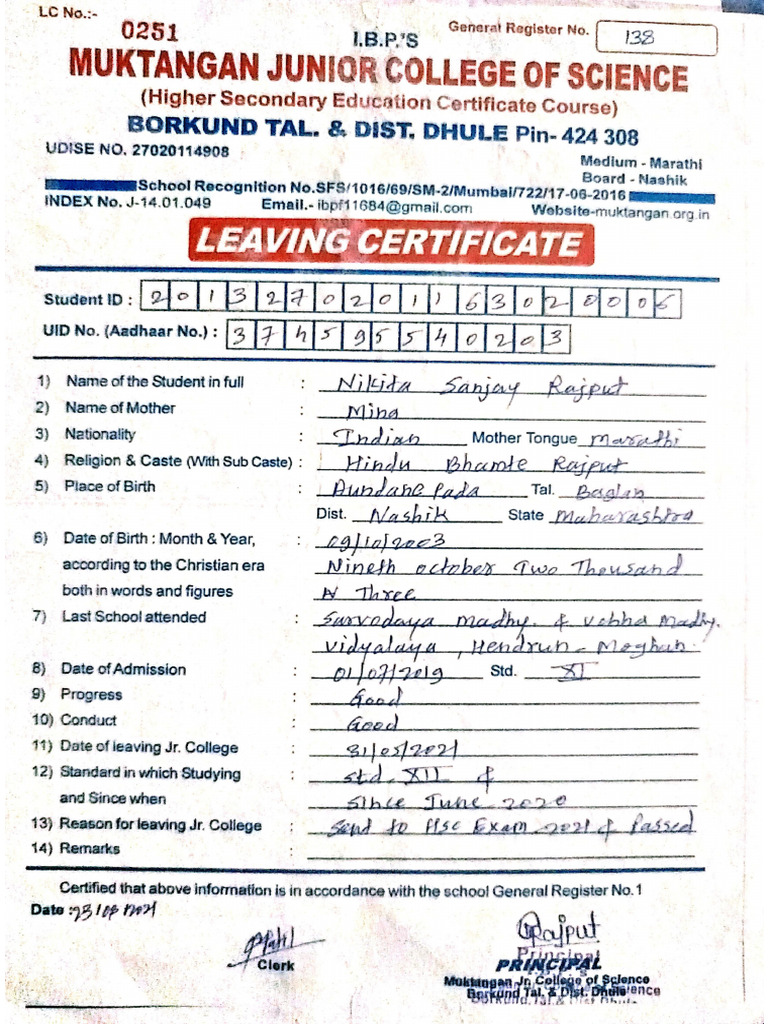 LC No.:-
0251
I.B.P.'S
General Register No. 138
MUKTANGAN JUNIOR COLLEGE OF SCIENCE
(Higher Secondary Education Certificate Course)
BORKUND TAL. & DIST. DHULE Pin- 424 308
UDISE NO. 27020114908
Medium - Marathi
Board - Nashik
School Recognition No.SFS/1016/69/SM-2/Mumbai/722/17-06-2016
INDEX No. J-14.01.049 Email.- ibpf11684@gmail.com Website-muktangan.org.in
LEAVING CERTIFICATE
Student ID : 2013270201163020006
UID No. (Aadhaar No.) : 374595540203
1) Name of the Student in full : Nikita Sanjay Rajput
2) Name of Mother : Mina
3) Nationality : Indian Mother Tongue Marathi
4) Religion & Caste (With Sub Caste) : Hindu Bhamte Rajput
5) Place of Birth : Aundane Pada Tal. Baglan
Dist. Nashik State Maharashtra
6) Date of Birth : Month & Year, : 09/10/2003
according to the Christian era Nineth october Two Thousand
both in words and figures & Three
7) Last School attended : Sarvodaya madhy. & Vchha Madhy.
Vidyalaya, Hendrun - Moghan.
8) Date of Admission : 01/07/2019 Std. XI
9) Progress : Good
10) Conduct : Good
11) Date of leaving Jr. College : 31/05/2021
12) Standard in which Studying : Std. XII &
and Since when Since June 2020
13) Reason for leaving Jr. College : Send to HSC Exam 2021 & Passed
14) Remarks :
Certified that above information is in accordance with the school General Register No.1
Date :23/08/2021
Patil
Rajput
Clerk
Principal
PRINCIPAL
Muktangan Jr. College of Science
Borkund Tal. & Dist. Dhule